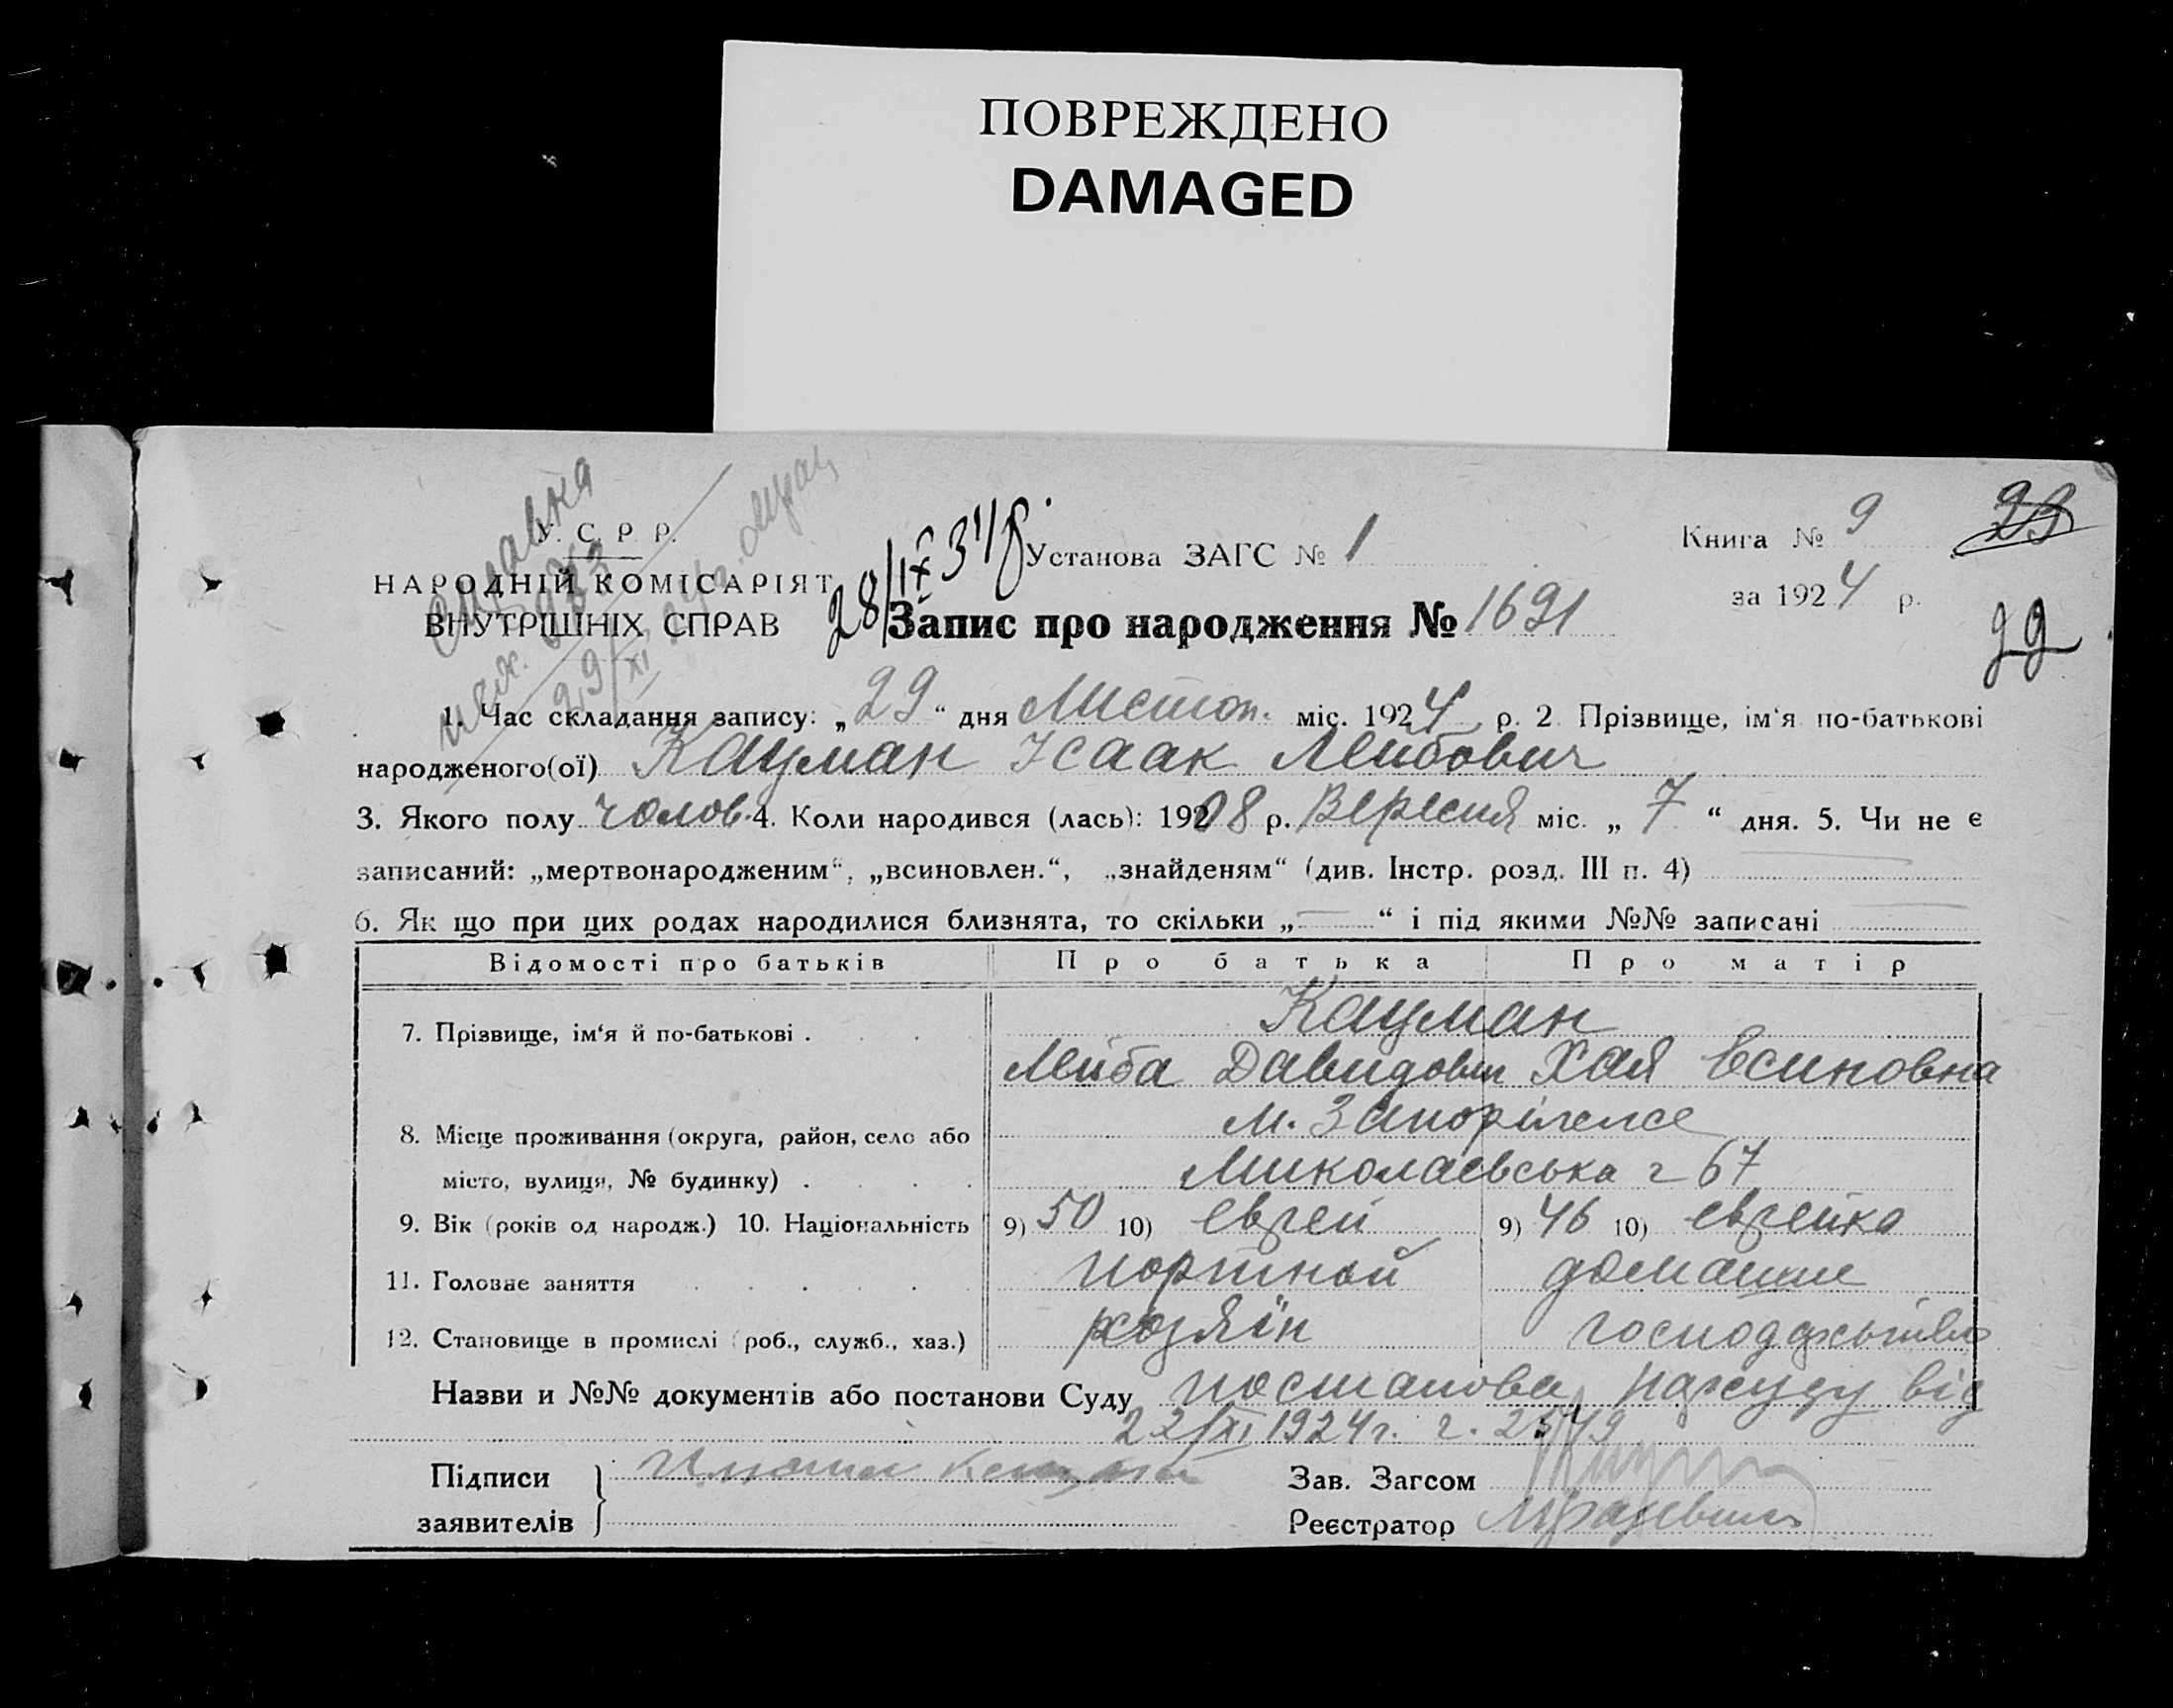 ПОВРЕЖДЕНО
DAMAGED
У. С. Р. Р.
НАРОДНІЙ КОМІСАРІЯТ
ВНУТРІШНІХ СПРАВ
Справка
29/XI
28/IX 34
Установа ЗАГС № 1
Книга № 9
за 1924 р.
Запис про народження № 1691
23
22
1. Час складання запису: „29“ дня Листоп. міс. 1924 р. 2. Прізвище, ім‘я по-батькові
народженого(ої) Кацман Ісаак Лейбович
3. Якого полу чолов. 4. Коли народився (лась): 1908 р. Вересня міс. „7“ дня. 5. Чи не є
записаний: „мертвонародженим“, „всиновлен.“, „знайденям“ (див. Інстр. розд. III п. 4)
6. Як що при цих родах народилися близнята, то скільки „—“ і під якими №№ записані —
Відомості про батьків Про батька Про матір
Кацман
7. Прізвище, ім‘я й по-батькові .
Лейба Давидович Хая Есиповна
м. Запоріжже
8. Місце проживання (округа, район, село або
місто, вулиця, № будинку) . Миколаевська 67
9. Вік (років од народж.) 10. Національність 9) 50 10) еврей 9) 46 10) еврейка
11. Головне заняття портной домашне
12. Становище в промислі (роб., служб., хаз.) хозяїн господарьство
Назви и №№ документів або постанови Суду постанова нарсуду від
22/XI 1924г.
Підписи
заявителів
Зав. Загсом
Реєстратор